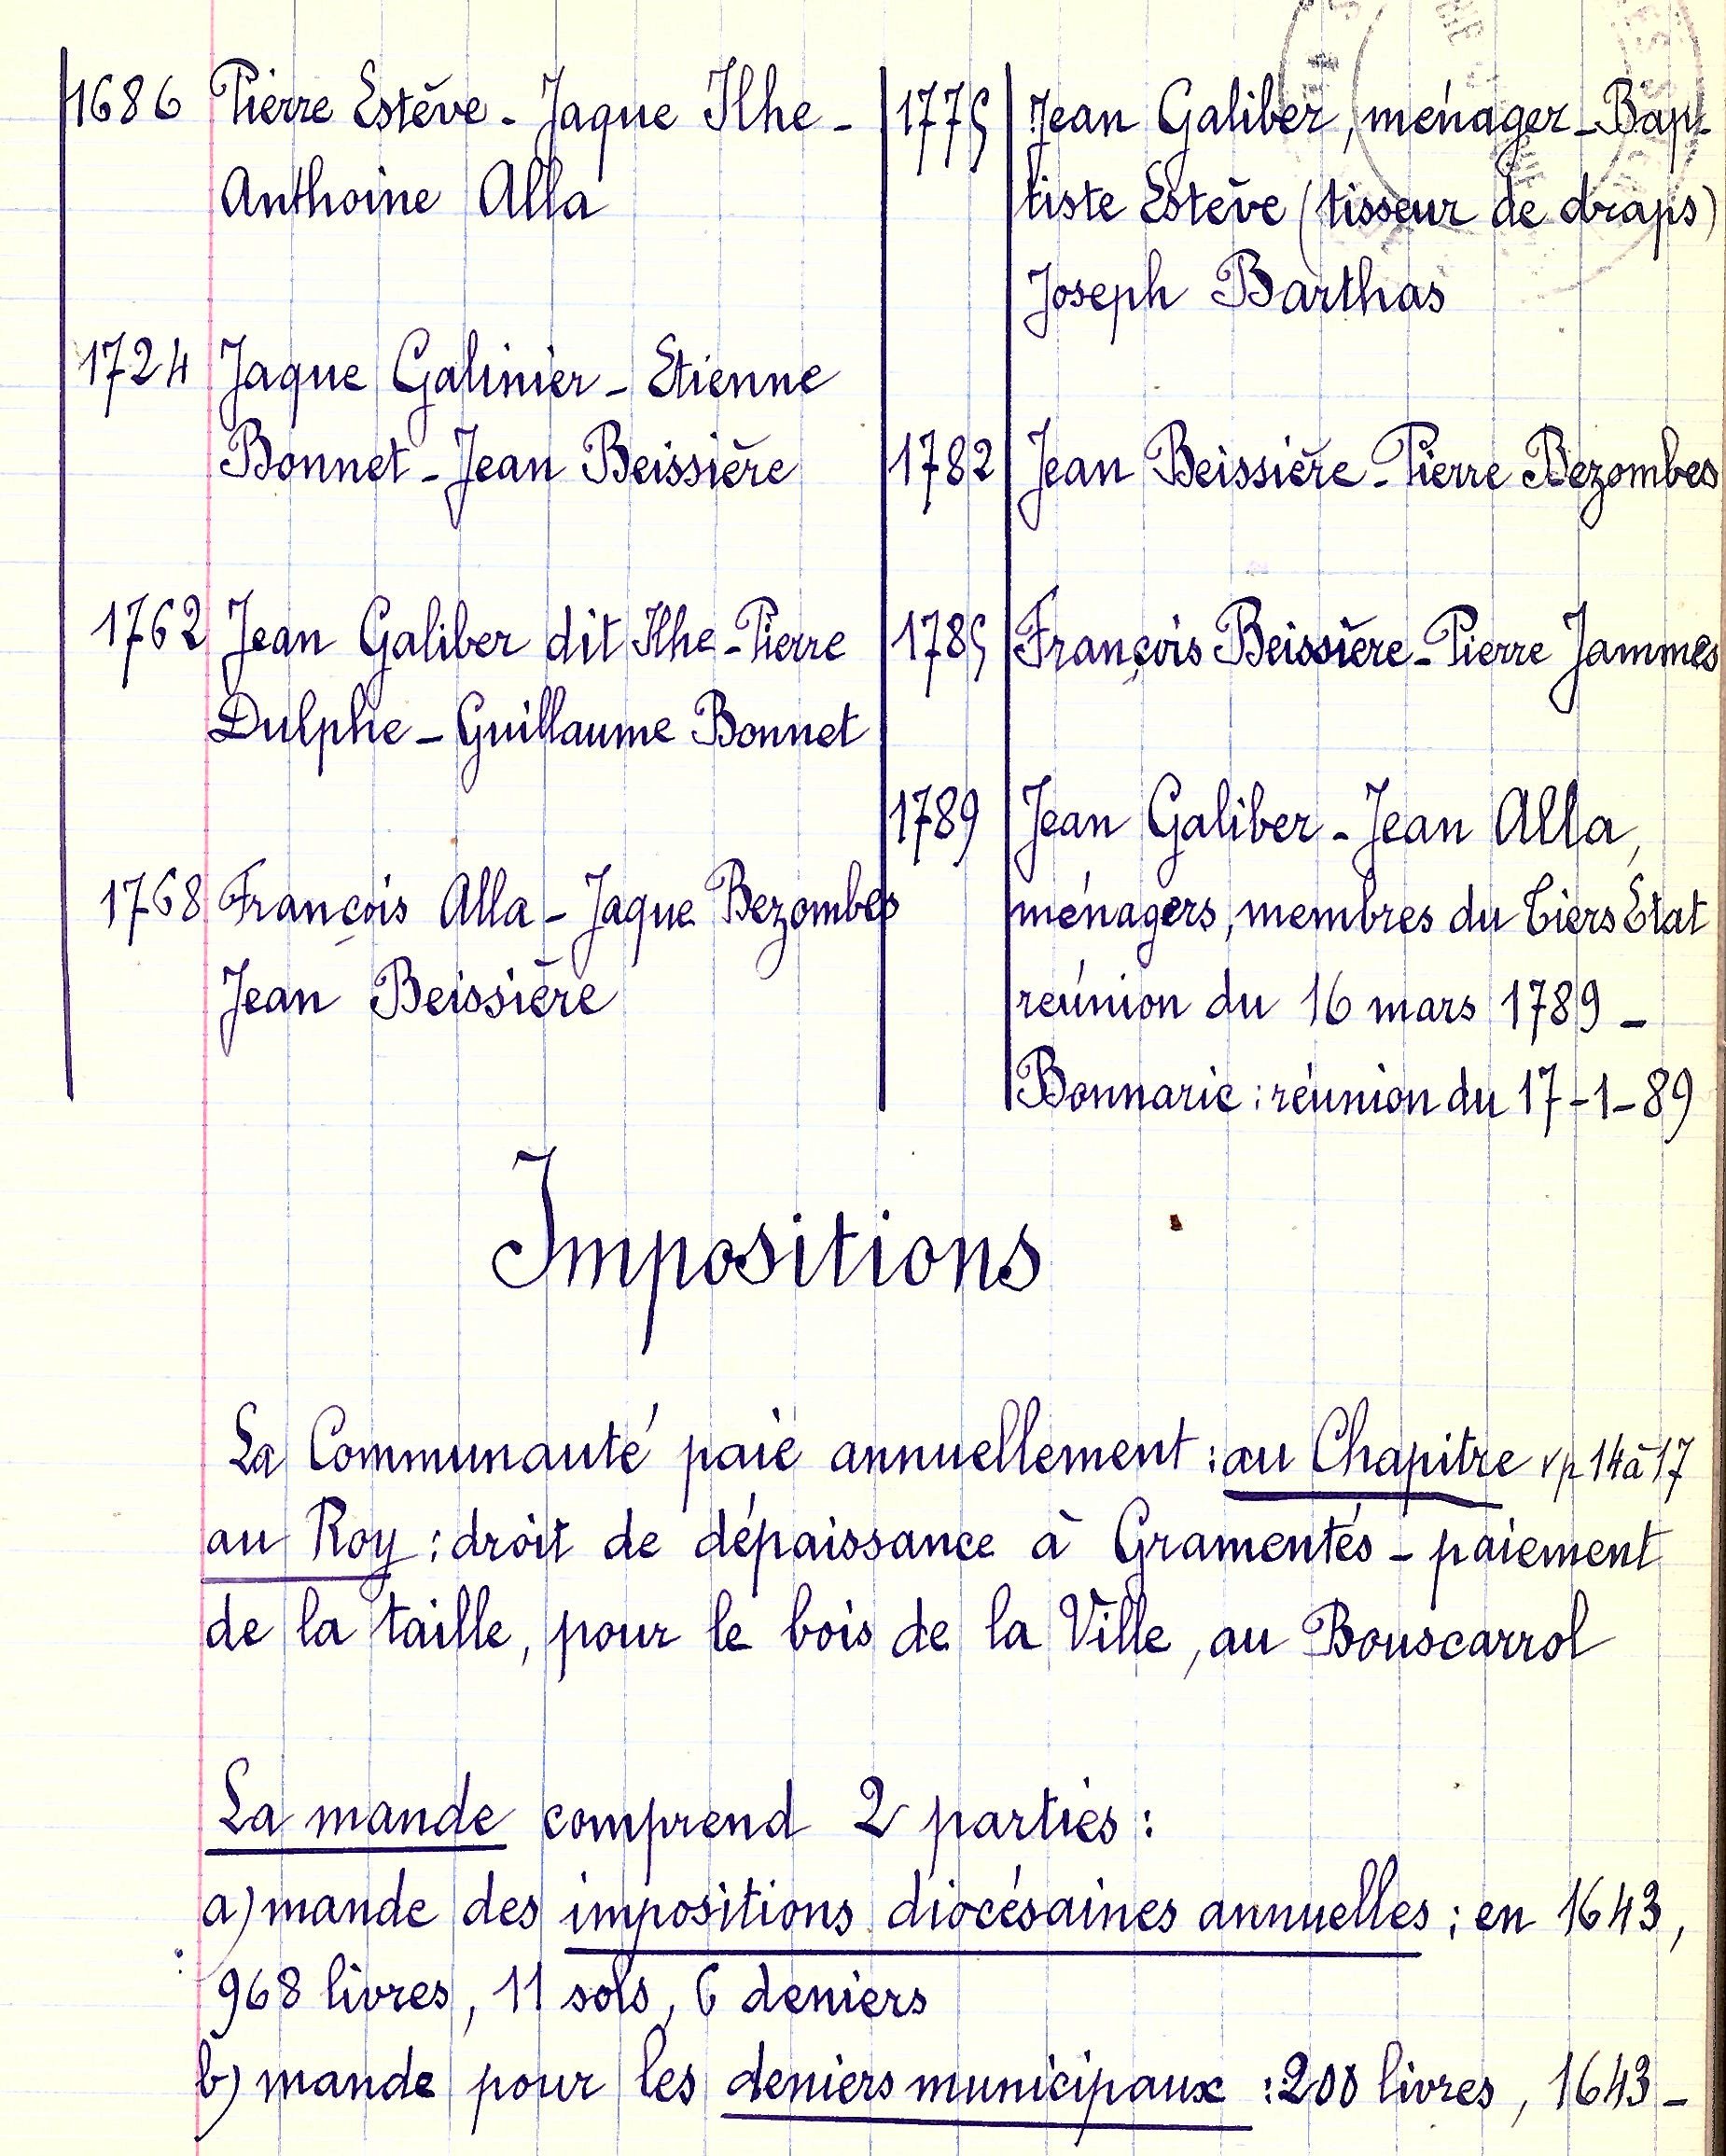 1686 Pierre Estève - Jaque Ilhe -
Anthoine Alla
1724 Jaque Galinier - Etienne
Bonnet - Jean Beissière
1762 Jean Galiber dit Ilhe - Pierre
Dulphe - Guillaume Bonnet
1768 François Alla - Jaque Bezombes
Jean Beissière
1775 Jean Galiber, ménager - Bap-
tiste Estève (tisseur de draps)
Joseph Barthas
1782 Jean Beissière - Pierre Bezombes
1785 François Beissière - Pierre Jammes
1789 Jean Galiber - Jean Alla,
ménagers, membres du Tiers Etat
réunion du 16 mars 1789 -
Bonnaric : réunion du 17-1-89
Impositions
La Communauté paie annuellement : au Chapitre vp 14 à 17
au Roy : droit de dépaissance à Gramentés - paiement
de la taille, pour le bois de la Ville, au Bouscarrol
La mande comprend 2 parties :
a) mande des impositions diocésaines annuelles ; en 1643,
968 livres, 11 sols, 6 deniers
b) mande pour les deniers municipaux : 200 livres, 1643 -